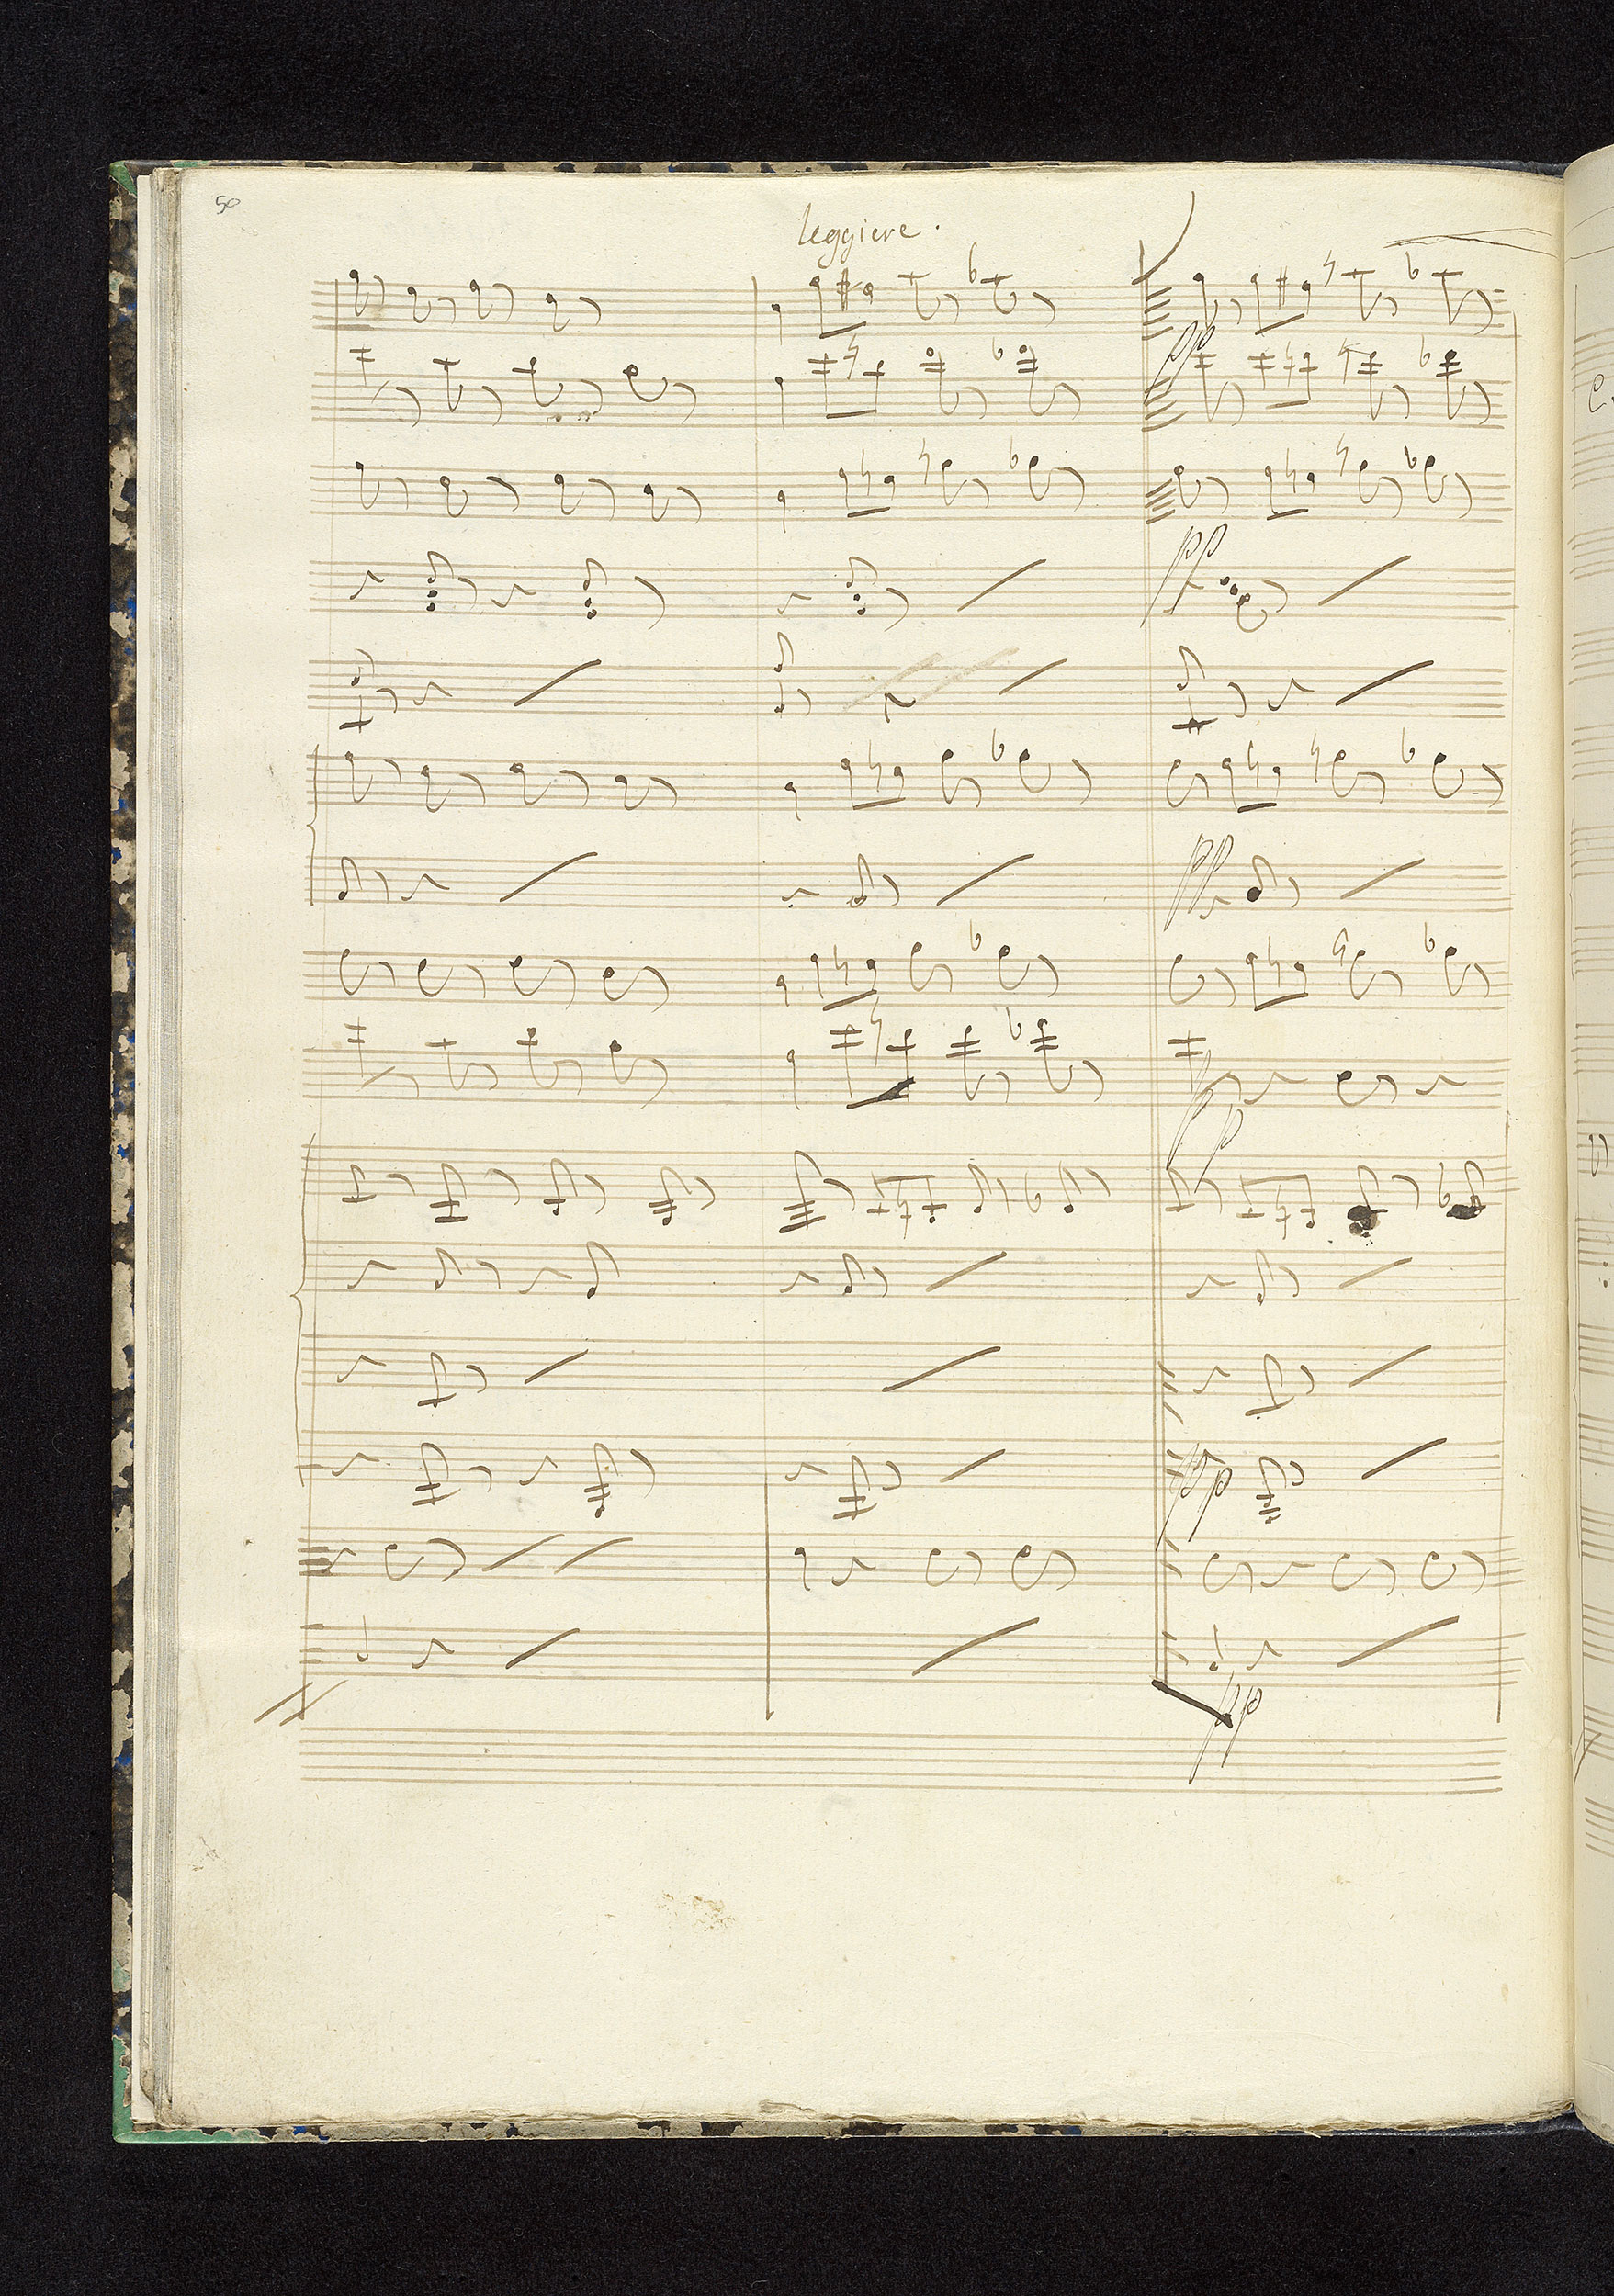 50
leggiere.
pp
pp
pp
pp
pp
pp